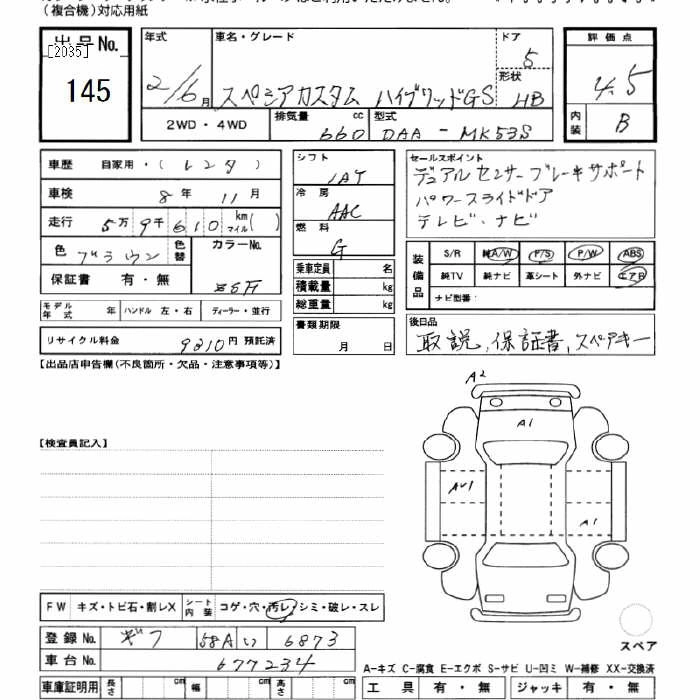 (複合機)対応用紙
出品No.
[2035]
145
年式
2/6月
車名・グレード
スペシアカスタム ハイブリッドGS
ドア
5
形状
HB
評価点
4.5
内装
B
2WD・4WD
排気量
660cc
型式
DAA-MK53S
車歴 自家用・(レンタ)
車検 8年 11月
走行 5万9千610km マイル( )
色 ブラウン 色替
カラーNo.
保証書 有・無
モデル年式 年 ハンドル 左・右 ディーラー・並行
リサイクル料金 9210円 預託済
シフト
IAT
冷房
AAC
燃料
G
乗車定員 名
積載量 kg
総重量 kg
書類期限
月 日
セールスポイント
デュアルセンサーブレーキサポート
パワースライドドア
テレビ・ナビ
装備品
S/R 純A/W P/S P/W ABS
純TV 純ナビ 革シート 外ナビ エアB
ナビ型番:
後日品
取説,保証書,スペアキー
【出品店申告欄(不良箇所・欠品・注意事項等)】
A2
A1
AU1
A1
【検査員記入】
FW キズ・トビ石・割レX
シート内装 コゲ・穴・汚レ・シミ・破レ・スレ
登録No. ギフ 58A い 6873
車台No. 677234
車庫証明用 長さ cm 幅 cm 高さ cm
スペア
A-キズ C-腐食 E-エクボ S-サビ U-凹ミ W-補修 XX-交換済
工具 有・無 ジャッキ 有・無